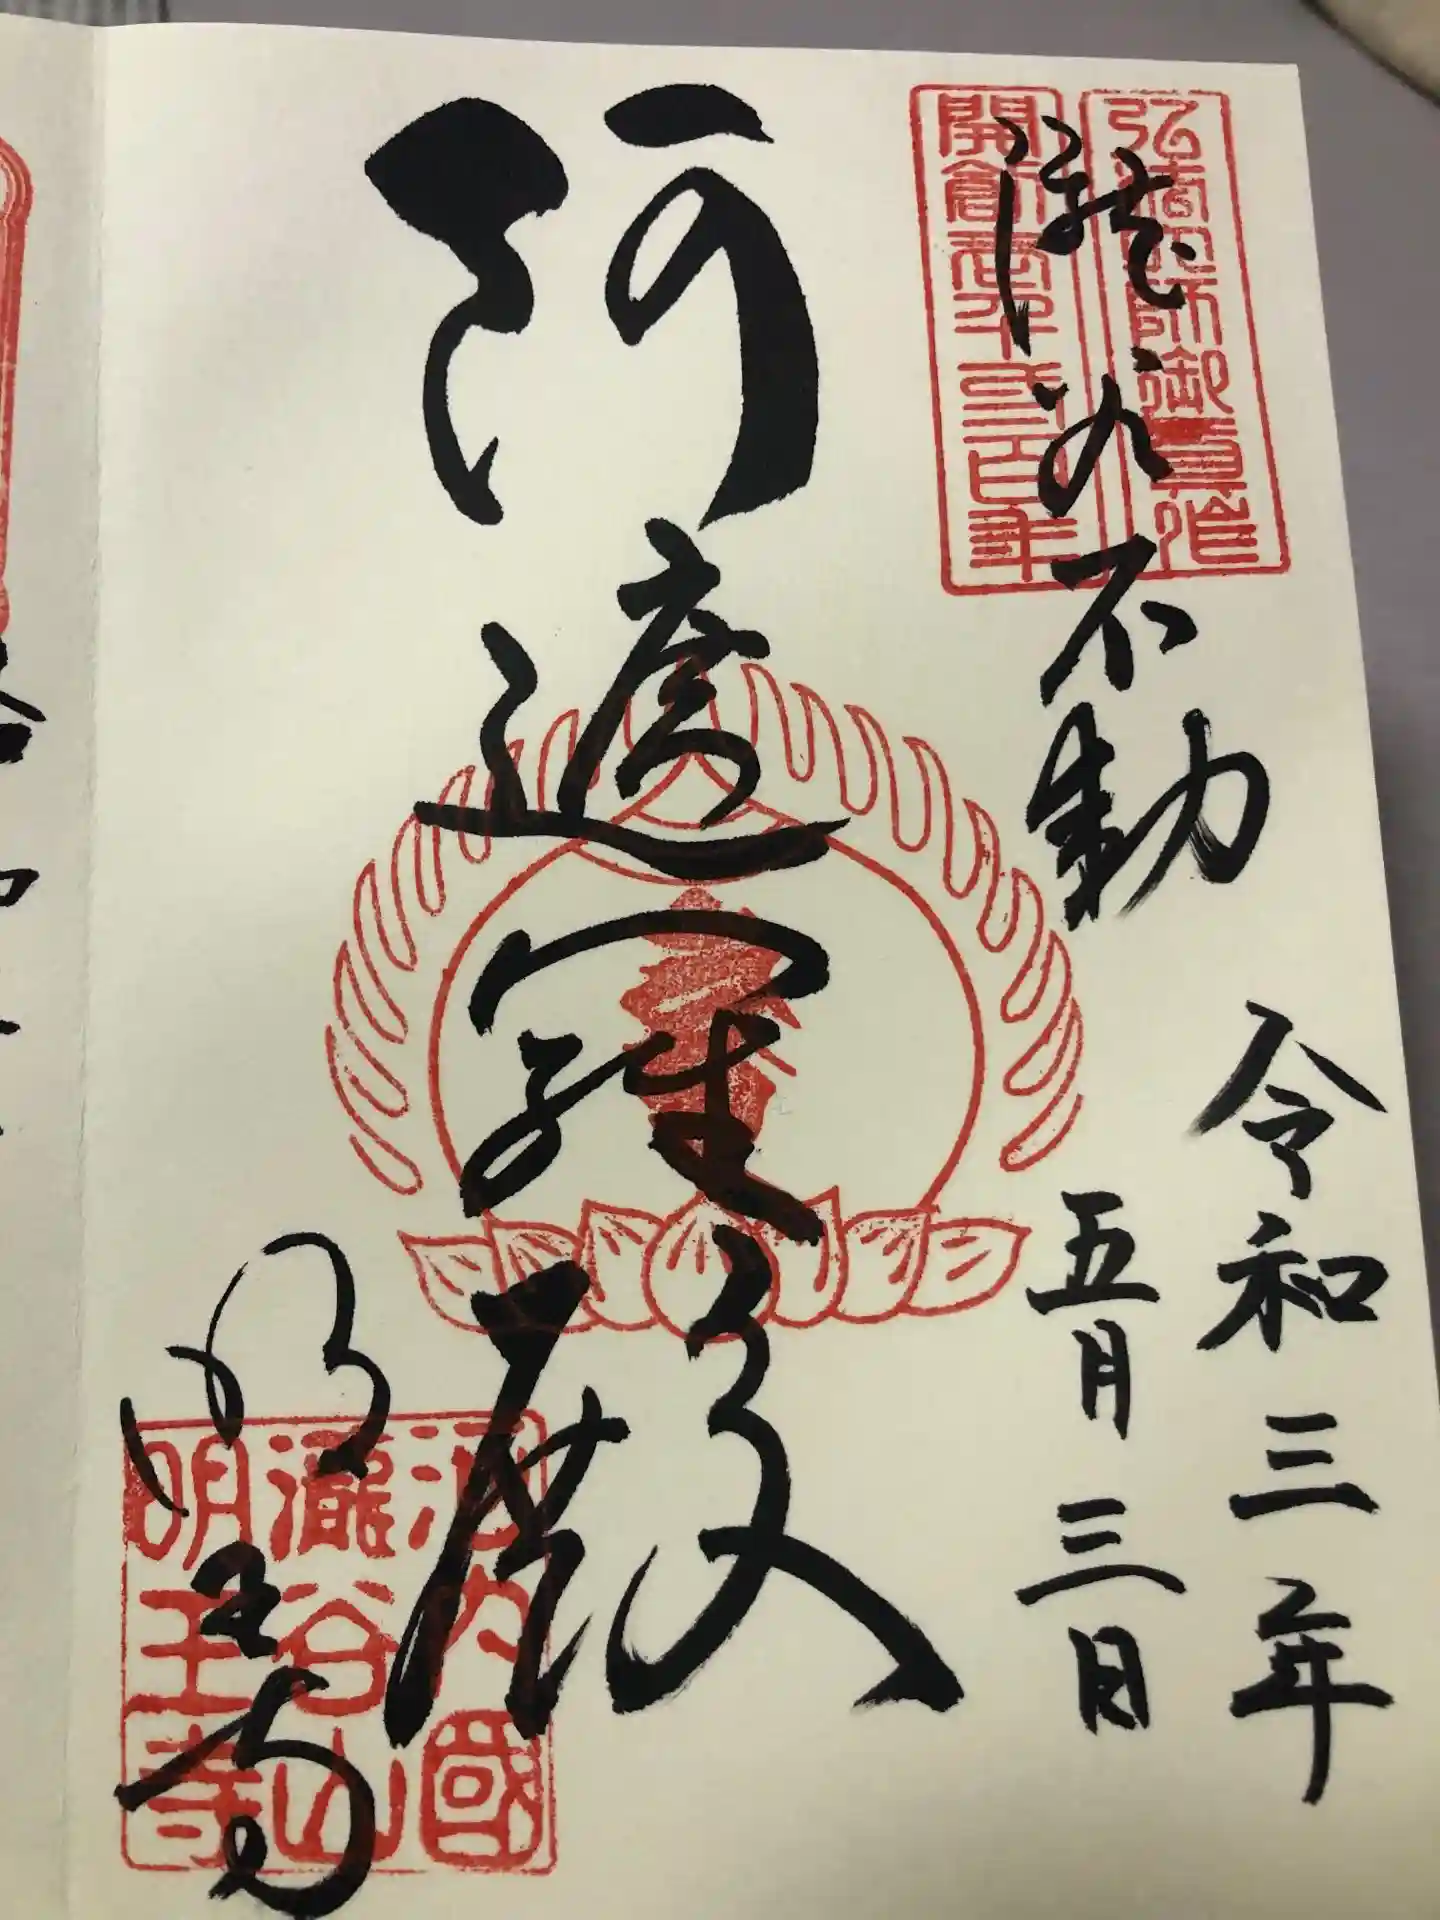 弘法大師御作
開創壱千弐百年
瀧谷不動
令和三年
五月三日
阿遮羅殿
明王寺
河内國
瀧谷山
明王寺